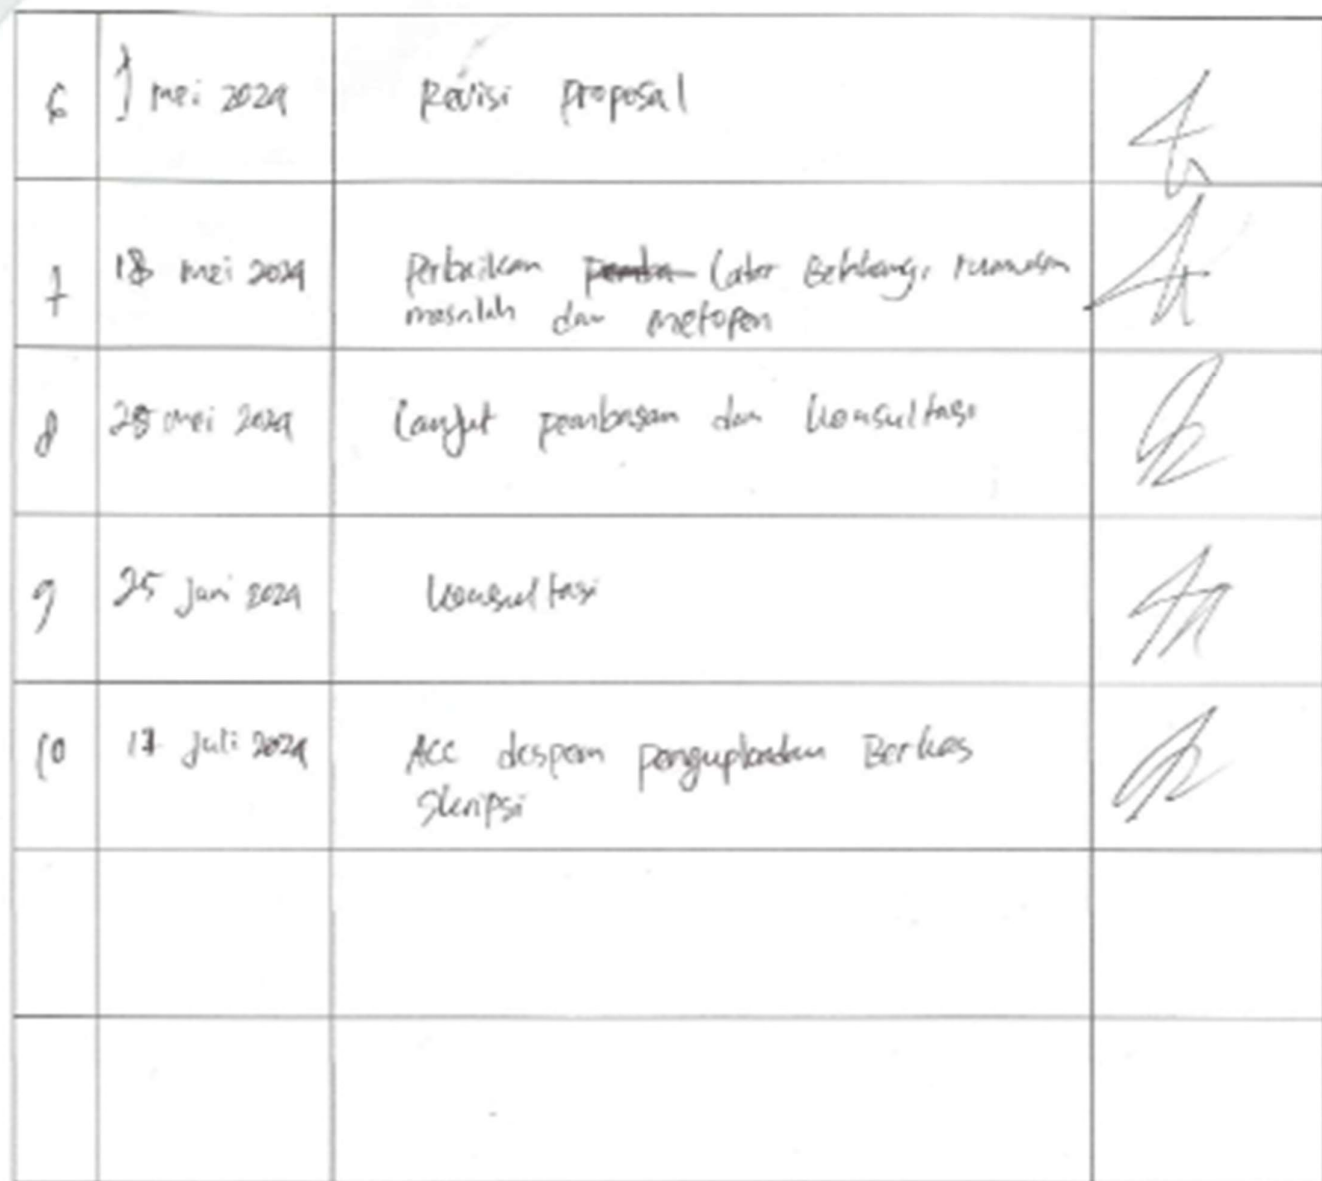 6 1 mei 2024 Revisi proposal
7 18 mei 2024 Perbaikan Latar Belakang, rumusan
masalah dan metopen
8 25 mei 2024 Lanjut pembasan dan konsultasi
9 25 Juni 2024 konsultasi
10 17 Juli 2024 ACC penguploadan Berkas
Skripsi